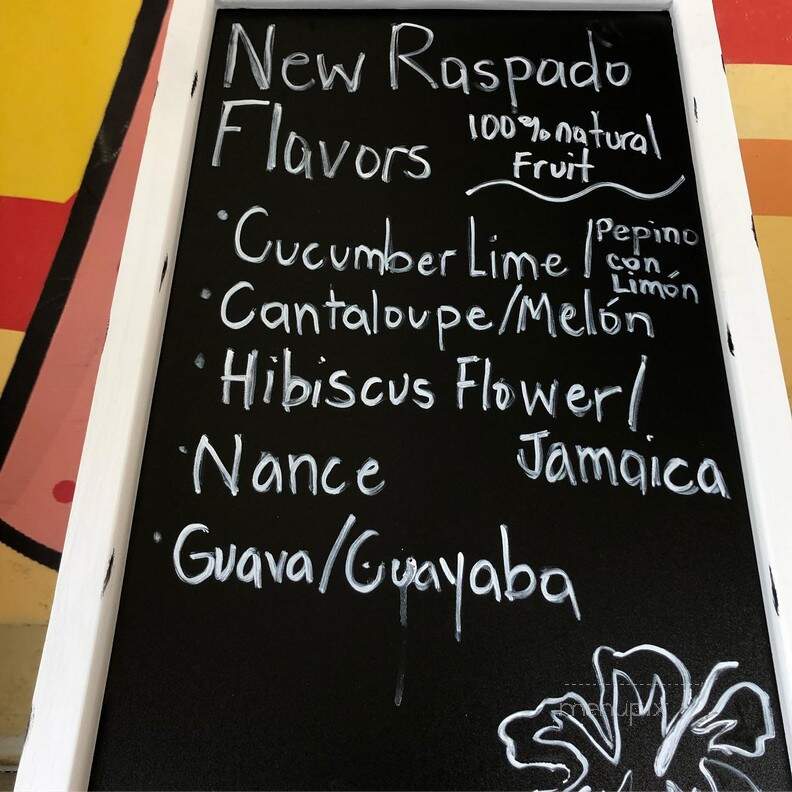 New Raspado
Flavors
100% natural
Fruit
• Cucumber Lime / Pepino
con
Limón
• Cantaloupe/Melón
• Hibiscus Flower/
Jamaica
• Nance
• Guava/Guayaba
menupix